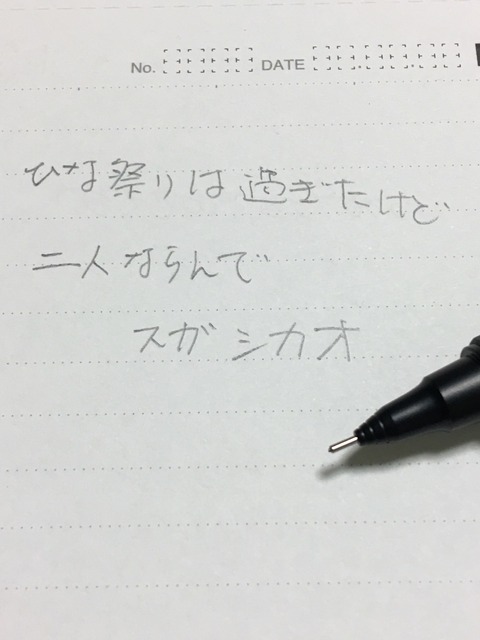 No. DATE
ひな祭りは過ぎたけど
二人ならんで
スガシカオ